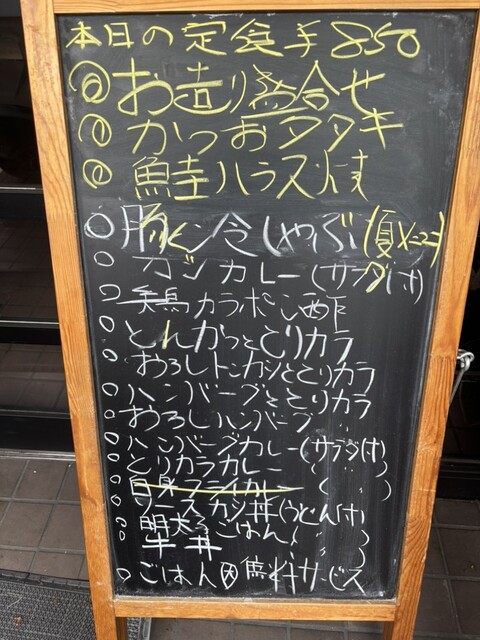 本日の定食 ¥850
◎お造り盛合せ
○かつおタタキ
○鮭ハラス焼
○豚しゃぶ(夏メニュー)
○カレー(サラダ付)
○鶏カラポン酢
○とんかつととりカラ
○おろしトンカツととりカラ
○ハンバーグととりカラ
○おろしハンバーグ
○ハンバーグカレー(サラダ付)
○とりカラカレー( 〃 )
○白身フライカレー( 〃 )
○ソースカツ丼(うどん付)
○明太子ごはん( 〃 )
○牛丼( 〃 )
○ごはん大無料サービス